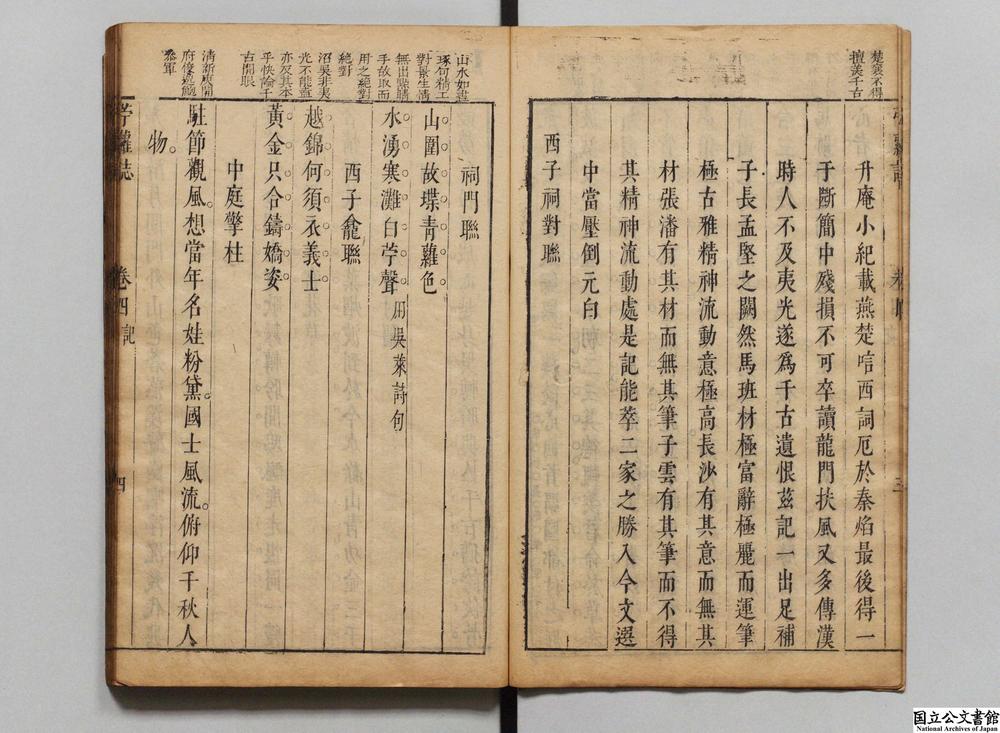 楚襄不得
擅美千古
升庵小紀載燕楚唁西詞厄於秦焰最後得一
于斷簡中殘損不可卒讀龍門扶風又多傳漢
時人不及夷光遂爲千古遺恨茲記一出足補
子長孟堅之闕然馬班材極富辭極麗而運筆
極古雅精神流動意極高長沙有其意而無其
材張潘有其材而無其筆子雲有其筆而不得
其精神流動處是記能萃二家之勝入今文選
中當壓倒元白
西子祠對聯
山水如畫
琢句精工
對景生情
無出點睛
手故取而
用之絕對
絕對
沼吳非美
光不能
亦反其本
乎快論千
古開眼
清新庾開
府俊逸鮑
參軍
祠門聯
山圍故堞青蘿色
水湧寒灘白苧聲 用吳萊詩句
西子龕聯
越錦何須衣義士
黃金只合鑄嬌姿
中庭擎柱
駐節觀風想當年名姓粉黛國士風流俯仰千秋人
物
苧蘿誌
卷四 記
四
国立公文書館
National Archives of Japan